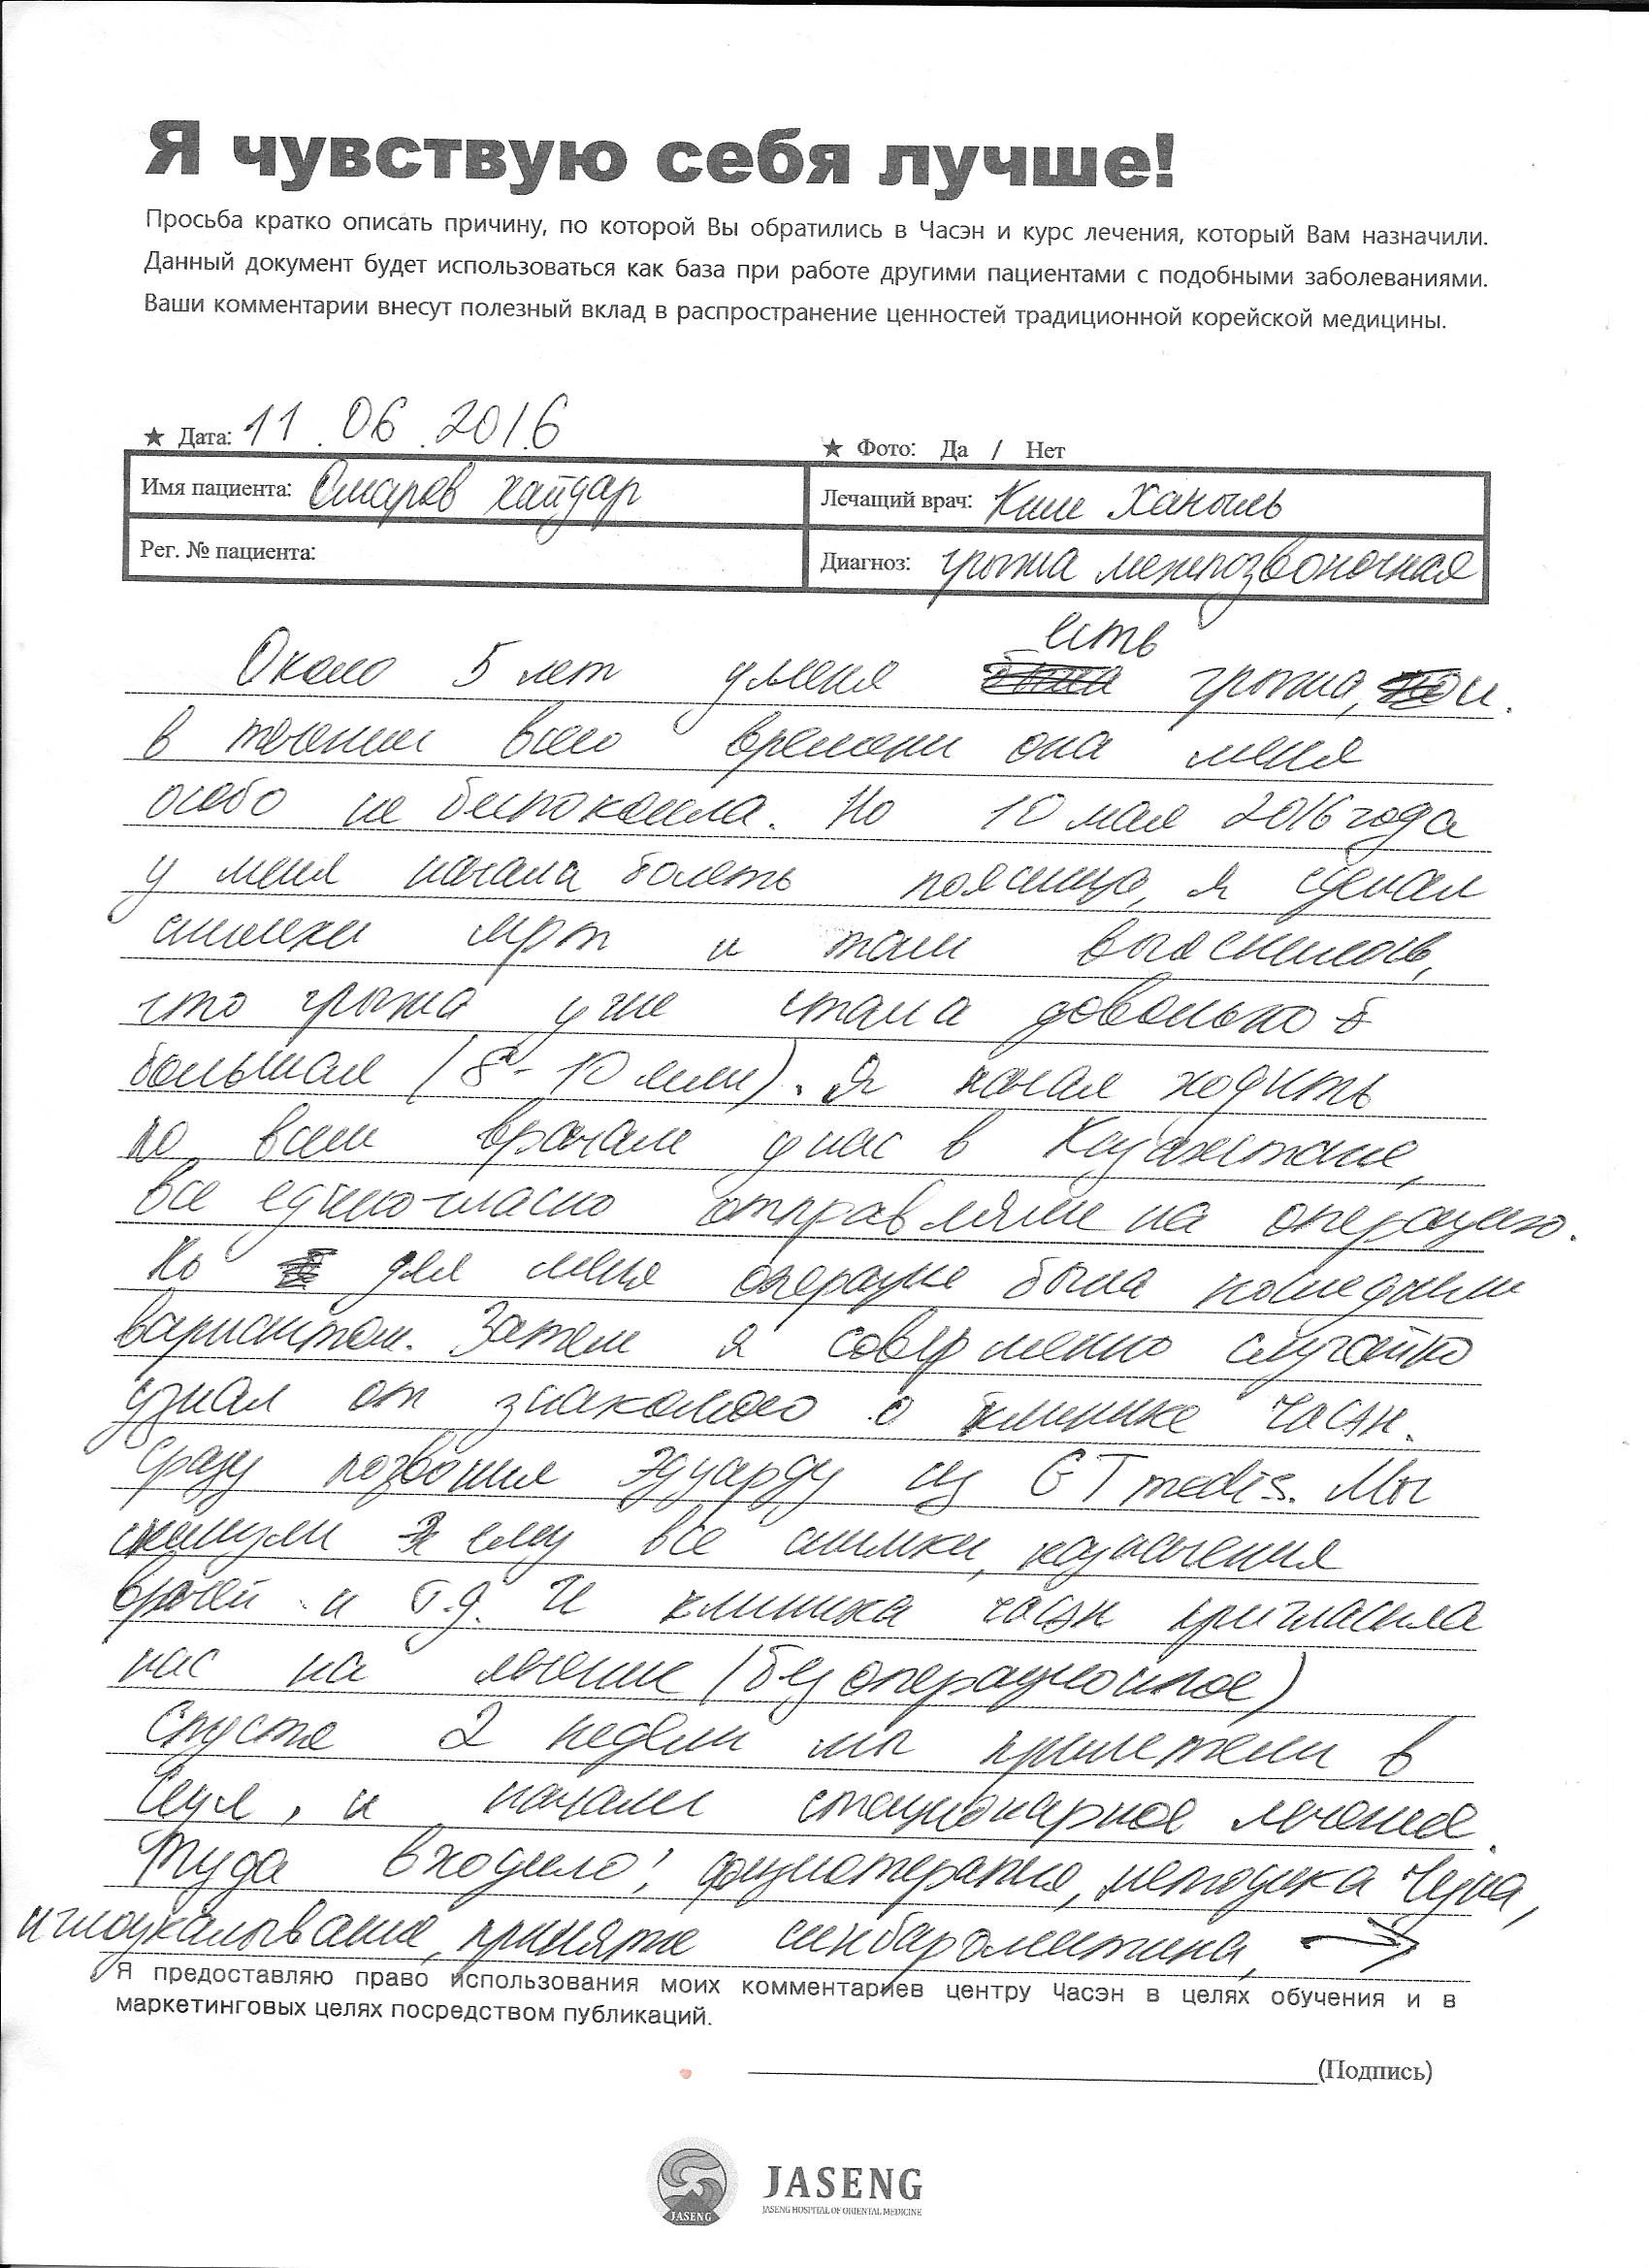 Я чувствую себя лучше!
Просьба кратко описать причину, по которой Вы обратились в Часэн и курс лечения, который Вам назначили.
Данный документ будет использоваться как база при работе другими пациентами с подобными заболеваниями.
Ваши комментарии внесут полезный вклад в распространение ценностей традиционной корейской медицины.
★ Дата: 11.06.2016
★ Фото: Да / Нет
Имя пациента: Омаров Хайдар
Лечащий врач: Ким Ханыль
Рег. № пациента:
Диагноз: грыжа межпозвоночная
есть
Около 5 лет у меня грыжа, и
в течении всего времени она меня
особо не беспокоила. Но 10 мая 2016 года
у меня начала болеть поясница, я сделал
снимки мрт и там выяснилось,
что грыжа уже стала довольно
большая (8-10 мм). Я начал ходить
по всем врачам у нас в Казахстане,
все единогласно отправляли на операцию.
Но для меня операция была последним
вариантом. Затем я совершенно случайно
узнал от знакомого о клинике Часэн.
Сразу позвонил Эдуарду из GT medis. Мы
скинули ему все снимки, назначения
врачей и т.д. И клиника часэн пригласила
нас на лечение (безоперационное)
Спустя 2 недели мы прилетели в
Сеул, и начали стационарное лечение.
Туда входило: физиотерапия, методика Чуна,
иглоукалывание, принятие синбаромитина, →
Я предоставляю право использования моих комментариев центру Часэн в целях обучения и в
маркетинговых целях посредством публикаций.
(Подпись)
JASENG
JASENG
JASENG HOSPITAL OF ORIENTAL MEDICINE